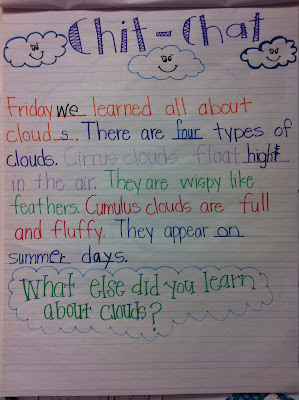 Chit-Chat
Friday we learned all about
clouds. There are four types of
clouds. Cirrus clouds float high
in the air. They are wispy like
feathers. Cumulus clouds are full
and fluffy. They appear on
summer days.
What else did you learn
about clouds?